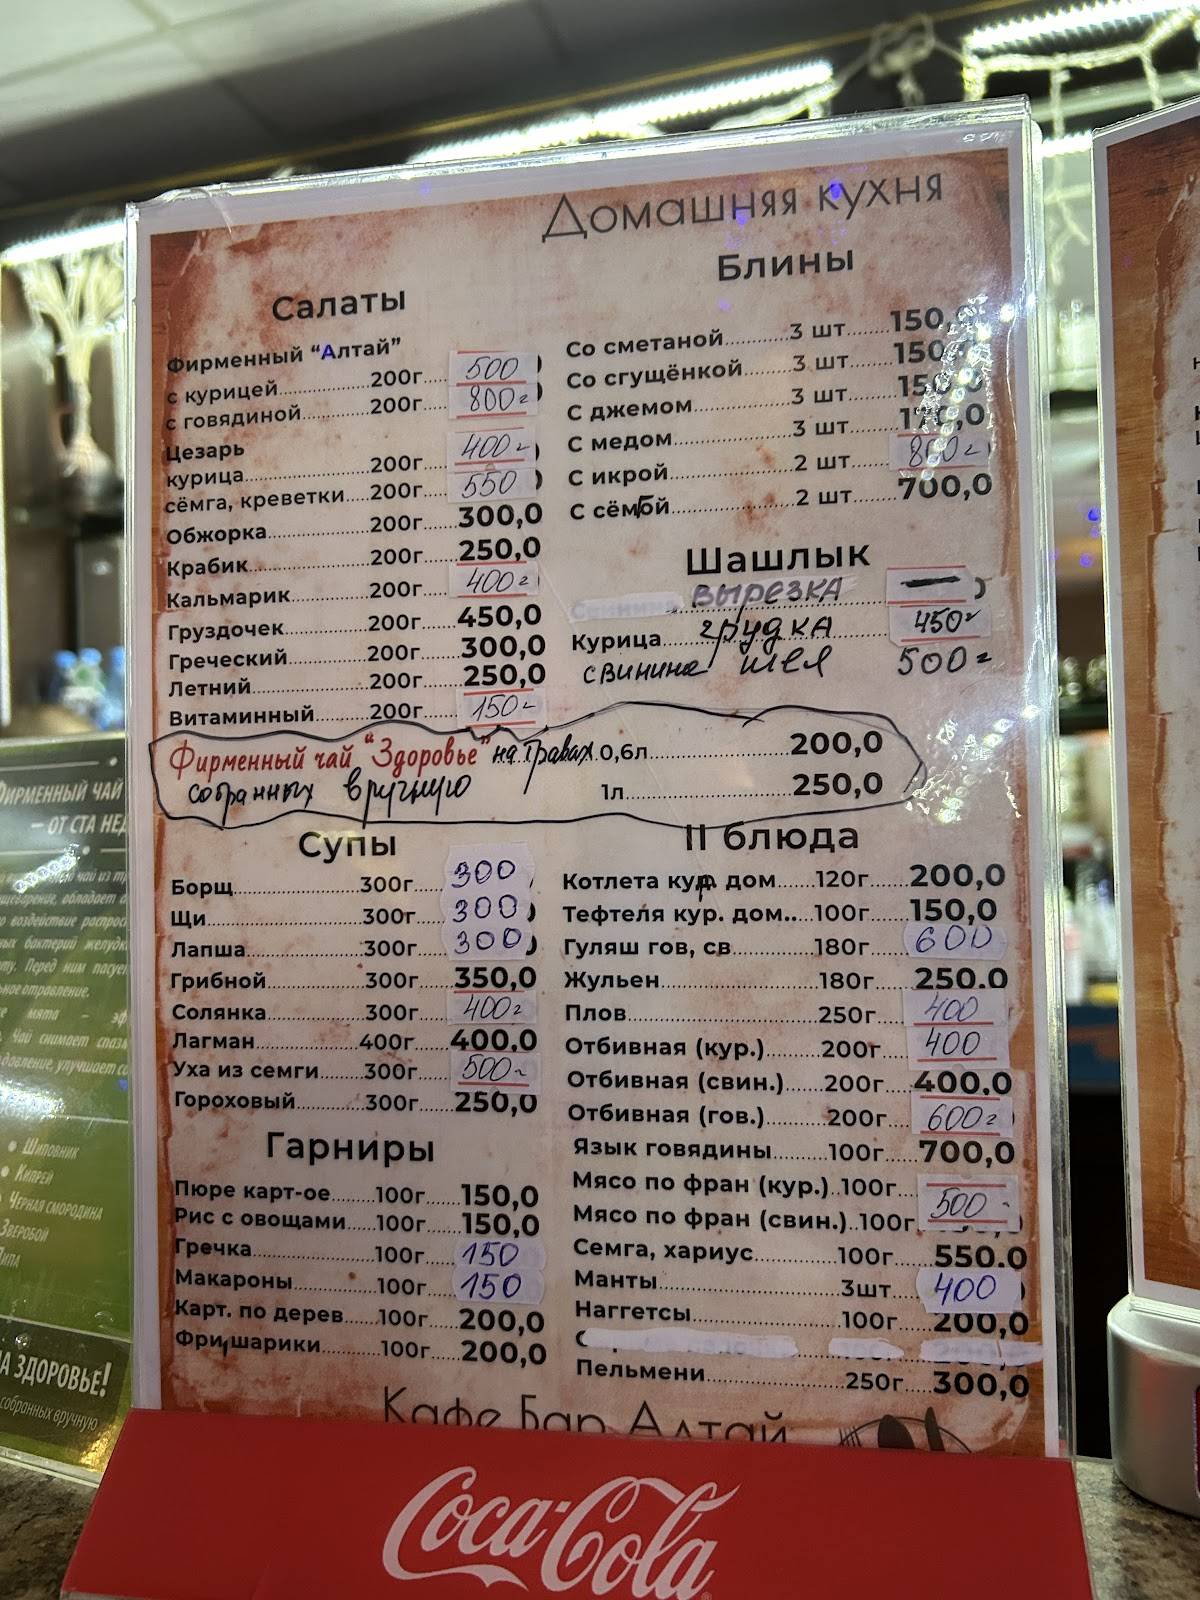 Домашняя кухня
Салаты
Фирменный "Алтай"
с курицей....200г.... 500
с говядиной....200г.... 800=
Цезарь
курица....200г.... 400=
сёмга, креветки....200г.... 550
Обжорка....200г....300,0
Крабик....200г....250,0
Кальмарик....200г.... 400=
Груздочек....200г....450,0
Греческий....200г....300,0
Летний....200г....250,0
Витаминный....200г.... 150=
Блины
Со сметаной....3 шт....150,0
Со сгущёнкой....3 шт....150,0
С джемом....3 шт....150,0
С медом....3 шт....170,0
С икрой....2 шт.... 800=
С сёмгой....2 шт....700,0
Шашлык
вырезка —
Курица грудка 450=
свинина шея 500=
Фирменный чай "Здоровье" на травах 0,6л....200,0
собранных вручную 1л....250,0
Супы
Борщ....300г.... 300
Щи....300г.... 300
Лапша....300г.... 300
Грибной....300г....350,0
Солянка....300г.... 400=
Лагман....400г....400,0
Уха из семги....300г.... 500=
Гороховый....300г....250,0
Гарниры
Пюре карт-ое....100г....150,0
Рис с овощами....100г....150,0
Гречка....100г.... 150
Макароны....100г.... 150
Карт. по дерев....100г....200,0
Фри,шарики....100г....200,0
II блюда
Котлета кур. дом....120г....200,0
Тефтеля кур. дом..100г....150,0
Гуляш гов, св....180г.... 600
Жульен....180г....250.0
Плов....250г.... 400
Отбивная (кур.)....200г 400
Отбивная (свин.)....200г....400.0
Отбивная (гов.)....200г.... 600=
Язык говядины....100г....700,0
Мясо по фран (кур.)..100г
Мясо по фран (свин.)..100г. 500-
Семга, хариус....100г....550.0
Манты....3шт.... 400
Наггетсы....100г....200,0
Пельмени....250г....300,0
Кафе Бар Алтай
Coca-Cola
ФИРМЕННЫЙ ЧАЙ
– ОТ СТА НЕД
• Шиповник
• Кипрей
• Черная смородина
Зверобой
Липа
НА ЗДОРОВЬЕ!
собранных вручную